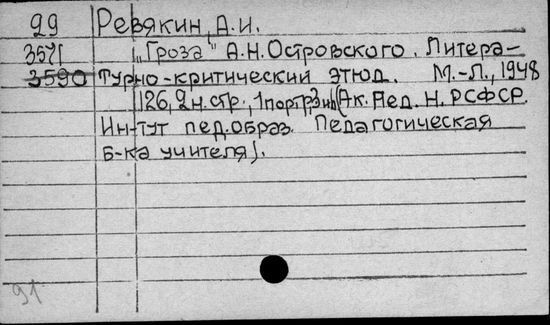 99 Ревякин, А.И.
3571 „Гроза" А.Н.Островского. Литера-
3590 турно-критический этюд. М.-Л., 1948
126, 2 н. стр., 1 портр. (Ак. Пед. Н. РСФСР.
Ин-тут пед. образ. Педагогическая
б-ка учителя).
91